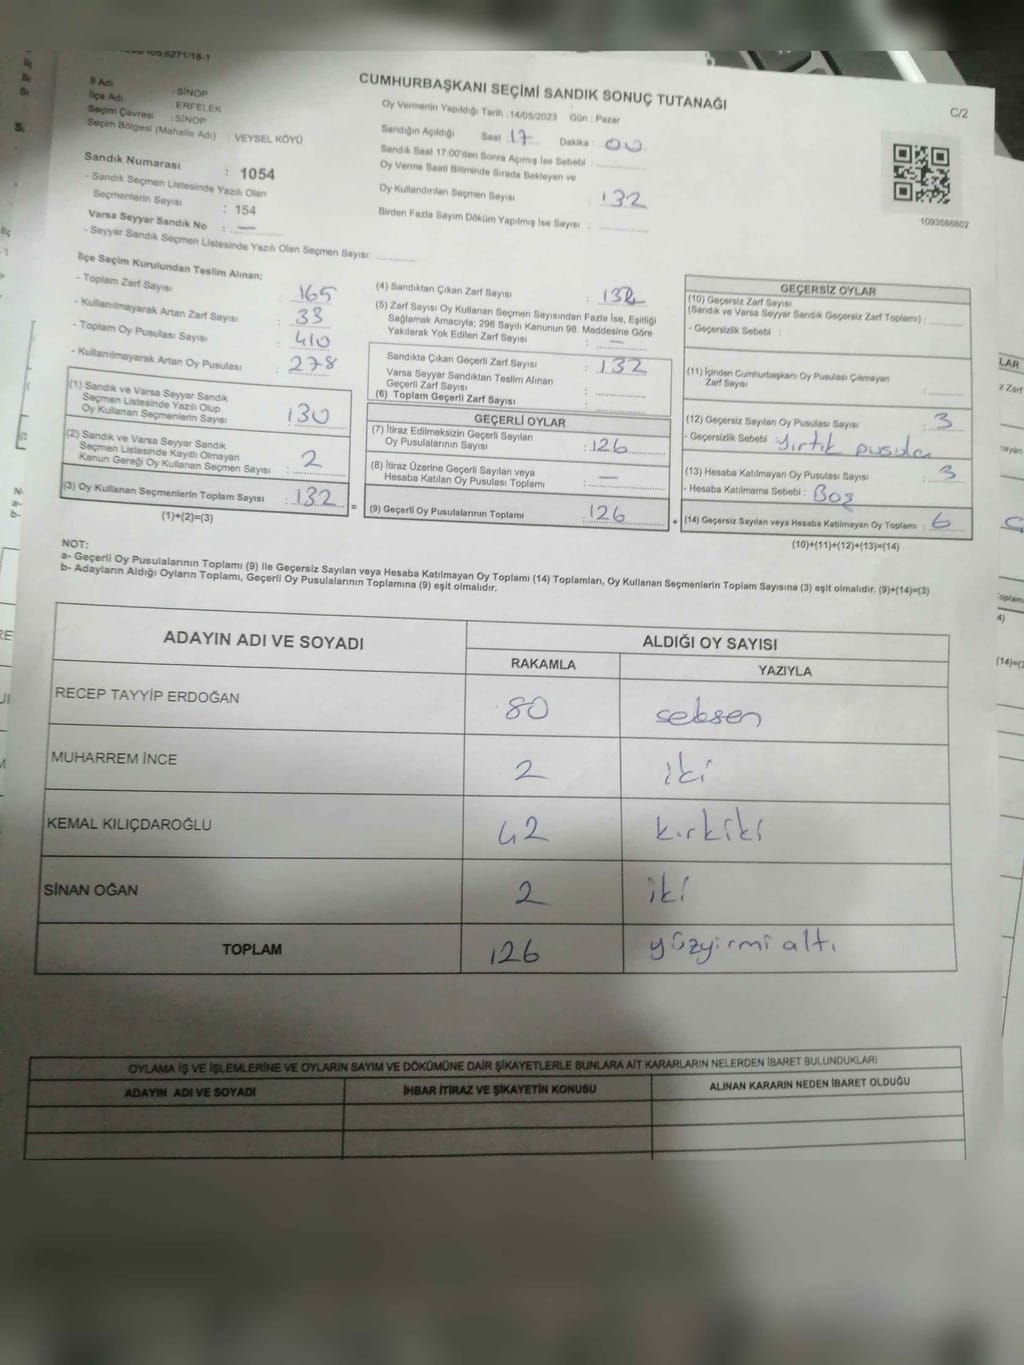 CUMHURBAŞKANI SEÇİMİ SANDIK SONUÇ TUTANAĞI
C/2
İl Adı : SİNOP
İlçe Adı : ERFELEK
Seçim Çevresi : SİNOP
Seçim Bölgesi (Mahalle Adı) : VEYSEL KÖYÜ
Oy Vermenin Yapıldığı Tarih :14/05/2023 Gün : Pazar
Sandığın Açıldığı Saat 17 Dakika : 00
Sandık Saat 17:00'den Sonra Açmış İse Sebebi :
Oy Verme Saati Bitiminde Sırada Bekleyen ve
Oy Kullandırılan Seçmen Sayısı : 132
Birden Fazla Sayım Döküm Yapılmış İse Sayısı :
1093566602
Sandık Numarası : 1054
- Sandık Seçmen Listesinde Yazılı Olan
Seçmenlerin Sayısı : 154
Varsa Seyyar Sandık No : —
- Seyyar Sandık Seçmen Listesinde Yazılı Olan Seçmen Sayısı:
İlçe Seçim Kurulundan Teslim Alınan;
- Toplam Zarf Sayısı : 165
- Kullanılmayarak Artan Zarf Sayısı : 33
- Toplam Oy Pusulası Sayısı : 410
- Kullanılmayarak Artan Oy Pusulası : 278
(1) Sandık ve Varsa Seyyar Sandık
Seçmen Listesinde Yazılı Olup
Oy Kullanan Seçmenlerin Sayısı : 130
(2) Sandık ve Varsa Seyyar Sandık
Seçmen Listesinde Kayıtlı Olmayan
Kanun Gereği Oy Kullanan Seçmen Sayısı : 2
(3) Oy Kullanan Seçmenlerin Toplam Sayısı : 132
(1)+(2)=(3)
=
(4) Sandıktan Çıkan Zarf Sayısı : 132
(5) Zarf Sayısı Oy Kullanan Seçmen Sayısından Fazla İse, Eşitliği
Sağlamak Amacıyla; 298 Sayılı Kanunun 98. Maddesine Göre
Yakılarak Yok Edilen Zarf Sayısı : —
Sandıkta Çıkan Geçerli Zarf Sayısı : 132
Varsa Seyyar Sandıktan Teslim Alınan
Geçerli Zarf Sayısı :
(6) Toplam Geçerli Zarf Sayısı :
GEÇERLİ OYLAR
(7) İtiraz Edilmeksizin Geçerli Sayılan
Oy Pusulalarının Sayısı : 126
(8) İtiraz Üzerine Geçerli Sayılan veya
Hesaba Katılan Oy Pusulası Toplamı : —
(9) Geçerli Oy Pusulalarının Toplamı : 126
+
GEÇERSİZ OYLAR
(10) Geçersiz Zarf Sayısı
(Sandık ve Varsa Seyyar Sandık Geçersiz Zarf Toplamı) :
- Geçersizlik Sebebi :
(11) İçinden Cumhurbaşkanı Oy Pusulası Çıkmayan
Zarf Sayısı :
(12) Geçersiz Sayılan Oy Pusulası Sayısı : 3
- Geçersizlik Sebebi : yırtık pusula
(13) Hesaba Katılmayan Oy Pusulası Sayısı : 3
- Hesaba Katılmama Sebebi : Boş
(14) Geçersiz Sayılan veya Hesaba Katılmayan Oy Toplamı : 6
(10)+(11)+(12)+(13)=(14)
NOT:
a- Geçerli Oy Pusulalarının Toplamı (9) ile Geçersiz Sayılan veya Hesaba Katılmayan Oy Toplamı (14) Toplamları, Oy Kullanan Seçmenlerin Toplam Sayısına (3) eşit olmalıdır. (9)+(14)=(3)
b- Adayların Aldığı Oyların Toplamı, Geçerli Oy Pusulalarının Toplamına (9) eşit olmalıdır.
ADAYIN ADI VE SOYADI ALDIĞI OY SAYISI
RAKAMLA YAZIYLA
RECEP TAYYİP ERDOĞAN 80 seksen
MUHARREM İNCE 2 iki
KEMAL KILIÇDAROĞLU 42 kırkiki
SİNAN OĞAN 2 iki
TOPLAM 126 yüzyirmi altı
OYLAMA İŞ VE İŞLEMLERİNE VE OYLARIN SAYIM VE DÖKÜMÜNE DAİR ŞİKAYETLERLE BUNLARA AİT KARARLARIN NELERDEN İBARET BULUNDUKLARI
ADAYIN ADI VE SOYADI İHBAR İTİRAZ VE ŞİKAYETİN KONUSU ALINAN KARARIN NEDEN İBARET OLDUĞU